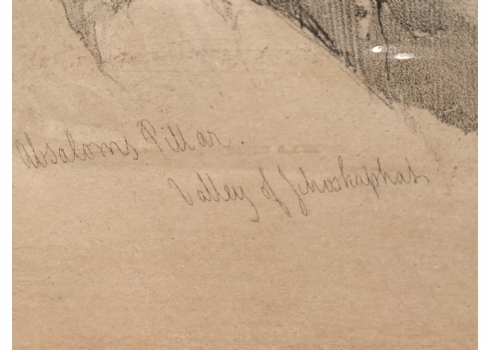 Absaloms Pillar.
Valley of Jehoshaphat